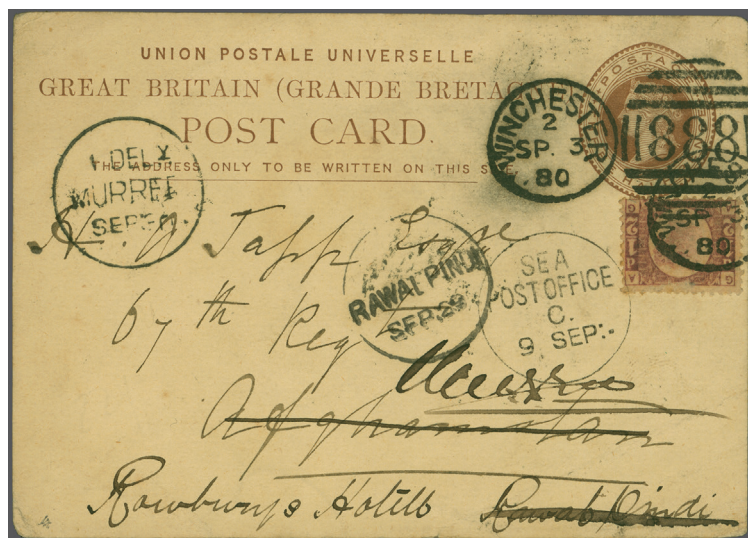 UNION POSTALE UNIVERSELLE
GREAT BRITAIN (GRANDE BRETAG
POST CARD.
THE ADDRESS ONLY TO BE WRITTEN ON THIS SIDE
POSTAGE
WINCHESTER
2
SP. 3
80
888
2
SP 3
80
DELY
MURREE
SEP 30
RAWAL PINDI
SEP. 29
SEA
POST OFFICE
C.
9 SEP
Tapp Esqre
67th Reg
Murree
Afghanistan
Hotell Rawal Pindi